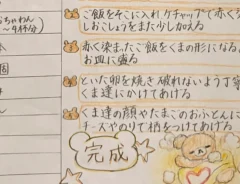 ちゃわん
～4杯分)
個
ご飯をそこに入れケチャップで赤く
しおこしょうをまた少し加える
赤く染まったご飯をくまの形になる
お皿に盛る
といた卵を焼き破れないよう丁寧
くま達にかけてあげる
くま達の顔やたまごのおふとんに
チーズやのりで柄をつけてあげる
完成